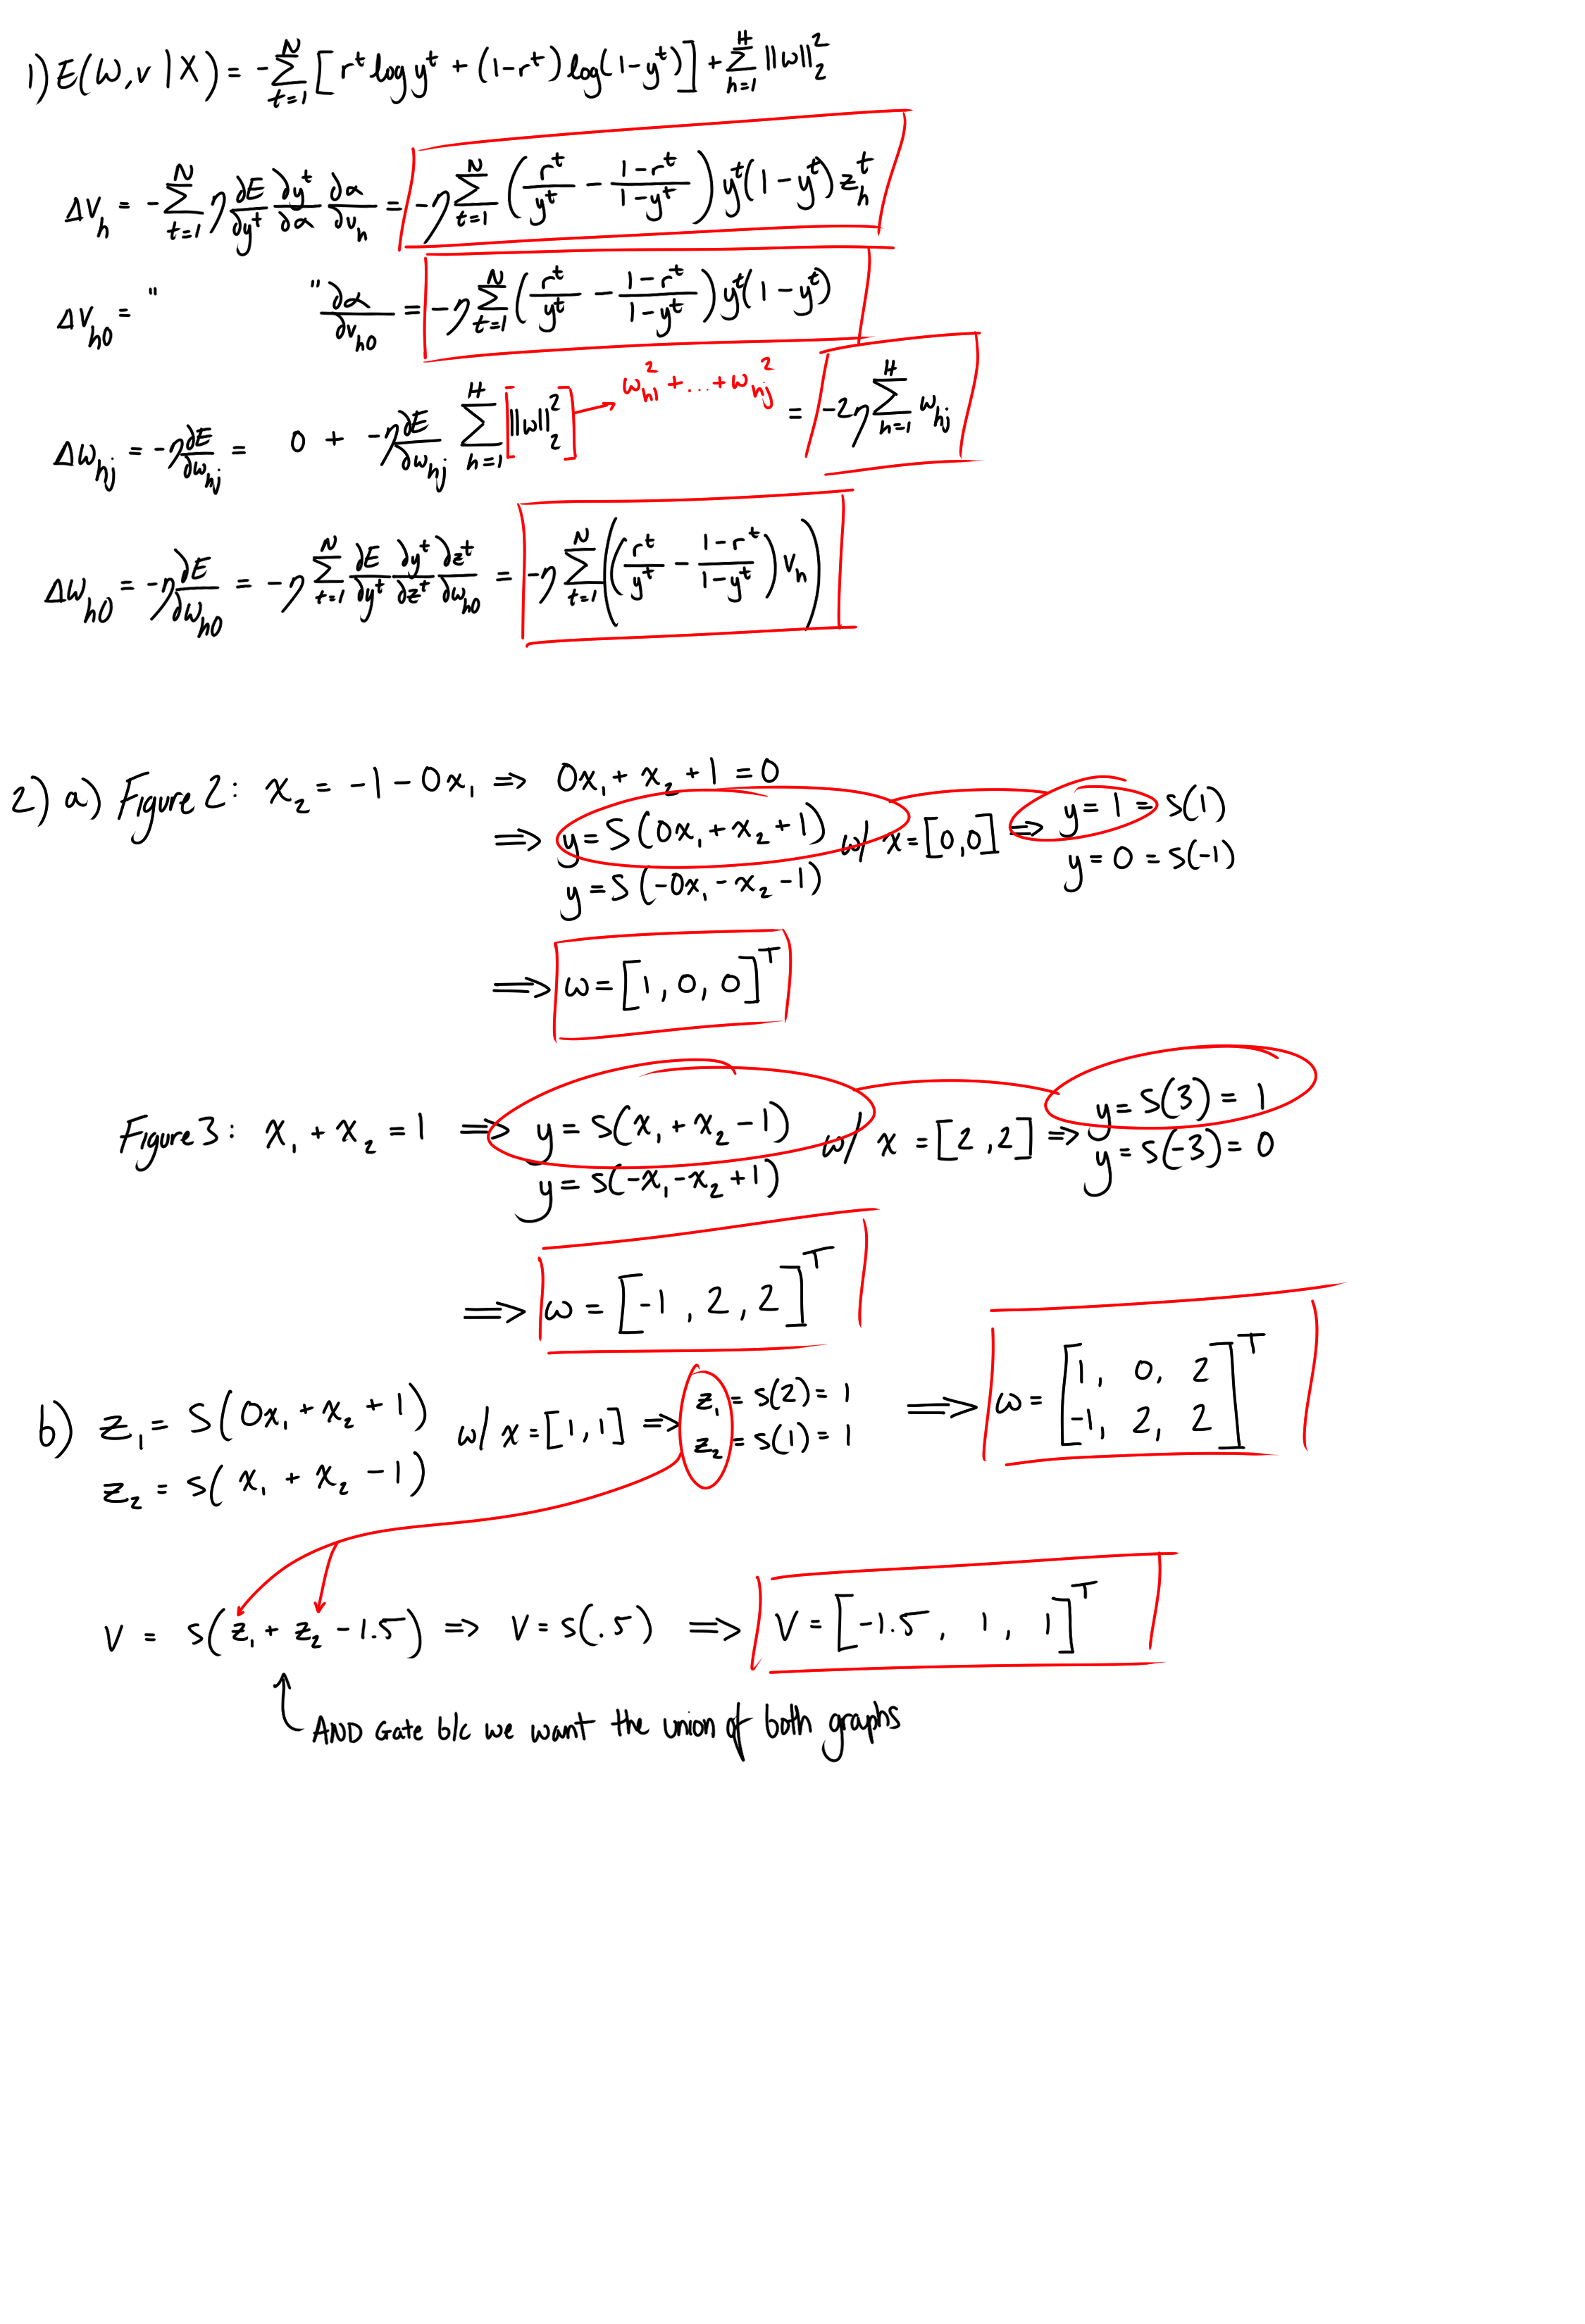 1) E(W, v | X) = -∑_{t=1}^{N} [r^t log y^t + (1-r^t) log(1-y^t)] + ∑_{h=1}^{H} ||w||_2^2
Δv_h = -∑_{t=1}^{N} η ∂E/∂y^t ∂y^t/∂α ∂α/∂v_h = -η ∑_{t=1}^{N} (r^t/y^t - (1-r^t)/(1-y^t)) y^t(1-y^t) z_h^t
Δv_{h0} = " " ∂α/∂v_{h0} = -η ∑_{t=1}^{N} (r^t/y^t - (1-r^t)/(1-y^t)) y^t(1-y^t)
Δw_{hj} = -η ∂E/∂w_{hj} = 0 + -η ∂E/∂w_{hj} ∑_{h=1}^{H} [||w||_2^2] → w_{h1}^2 + ... + w_{hj}^2 = -2η ∑_{h=1}^{H} w_{hj}
Δw_{h0} = -η ∂E/∂w_{h0} = -η ∑_{t=1}^{N} ∂E/∂y^t ∂y^t/∂z^t ∂z^t/∂w_{h0} = -η ∑_{t=1}^{N} ((r^t/y^t - (1-r^t)/(1-y^t)) v_h)
2) a) Figure 2: x_2 = -1 - 0x_1 => 0x_1 + x_2 + 1 = 0
=> y = S(0x_1 + x_2 + 1) w/ x = [0,0] => y = 1 = s(1)
y = S(-0x_1 - x_2 - 1) y = 0 = s(-1)
=> w = [1, 0, 0]^T
Figure 3: x_1 + x_2 = 1 => y = s(x_1 + x_2 - 1) w/ x = [2,2] => y = s(3) = 1
y = s(-x_1 - x_2 + 1) y = s(-3) = 0
=> w = [-1, 2, 2]^T
b) z_1 = S(0x_1 + x_2 + 1) w/ x = [1,1] => z_1 = s(2) = 1 => w = [1, 0, 2
z_2 = s(x_1 + x_2 - 1) z_2 = s(1) = 1 -1, 2, 2]^T
V = s(z_1 + z_2 - 1.5) => V = s(.5) => V = [-1.5, 1, 1]^T
AND Gate b/c we want the union of both graphs